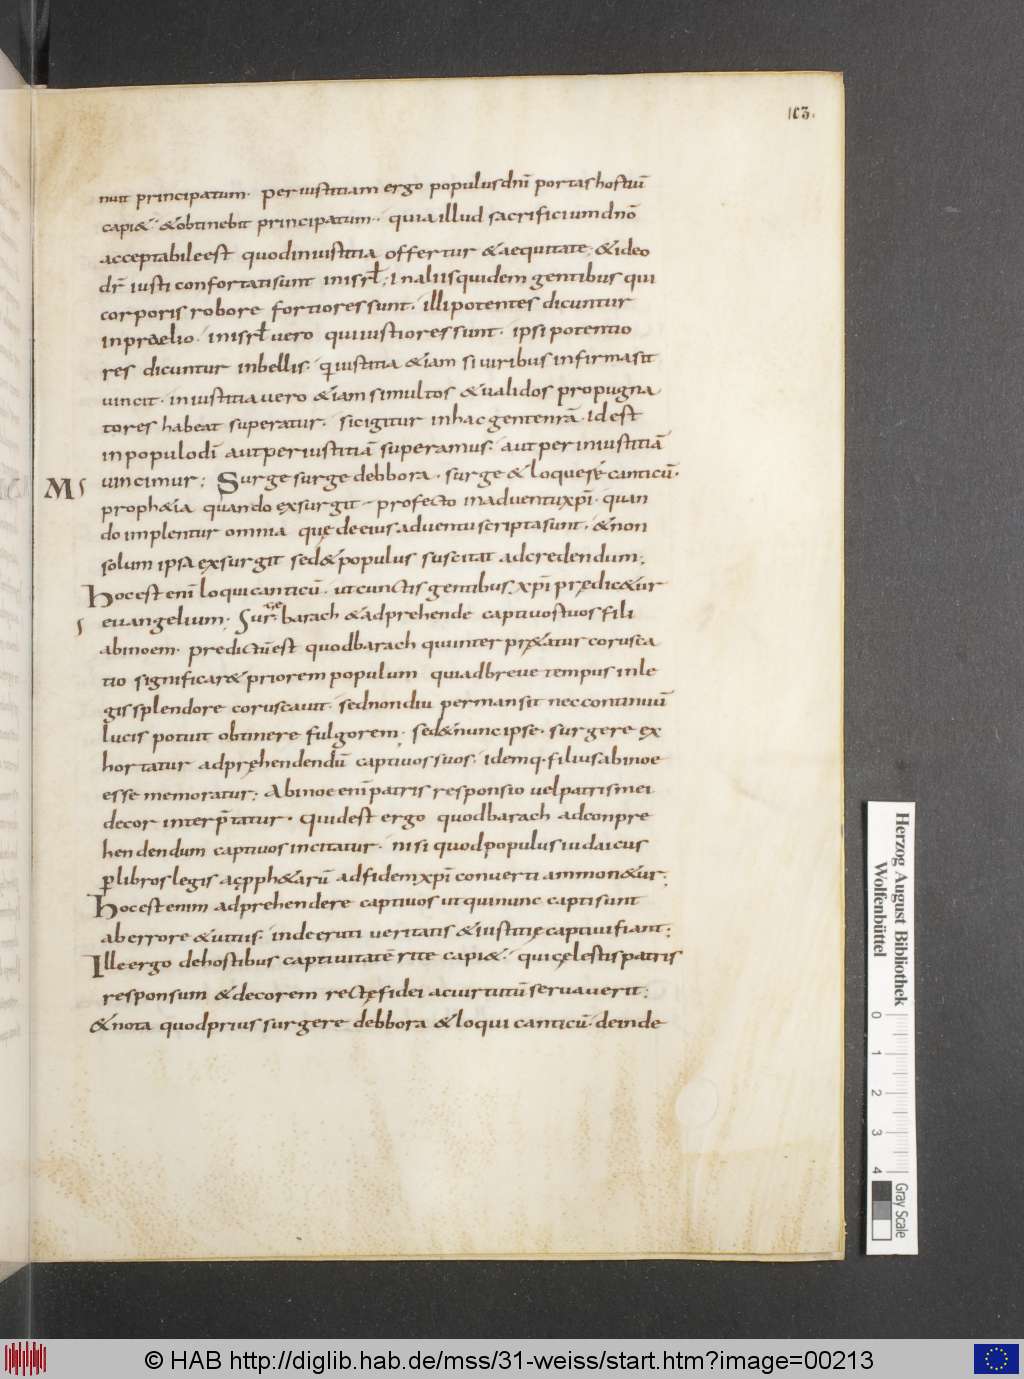 103.
nuit principatum. per iustitiam ergo populus dnī portas hostiū
capi& & obtinebit principatum. quia illud sacrificium dnō
acceptabile est quod in iustitia offertur & aequitate; & ideo
dr̄ iusti confortati sunt in isrł; In aliis quidem gentibus qui
corporis robore fortiores sunt. illi potentes dicuntur
in praelio. in isrł vero qui iustiores sunt. ipsi potentio
res dicuntur in bellis. q̄ iustitia &iam si uiribus infirma sit
uincit. iniustitia uero &iam si multos & ualidos propugna
tores habeat superatur. sic igitur in hac gente nr̄a. id est
in populo dī aut per iustitiā superamus. aut per iniustitiā
uincimur; Surge surge debbora. surge & loquere canticū.
M S
proph&ia quando ęxsurgit profecto in aduentu xpī. quan
do implentur omnia quę de eius aduentu scripta sunt. & non
solum ipsa ęxsurgit sed & populus suscitat ad credendum;
hoc est enī loqui canticū. ut cunctis gentibus xpī prędic&ur
euangelium. Surge barach & adprehende captiuos tuos fili
S
abinoem. predictū est quod barach qui interpr&atur corusca
tio significar& priorem populum quia ad breue tempus in le
gis splendore coruscauit. sed non diu permansit nec continuū
lucis potuit obtinere fulgorem. sed & nunc ipse. surgere ęx
hortatur adpręhendendū captiuos suos. idemq. filius abinoe
esse memoratur; Abinoe enī patris responsio uel patris mei
decor interp̄tatur. Quid est ergo quod barach ad conpre
hendendum captiuos incitatur. nisi quod populus iudaicus
ꝑ libros legis ac pph&arū ad fidem xpī conuerti ammon&ur;
hoc est enim adprehendere captiuos ut qui nunc capti sunt
ab errore & uitiis. inde eruti ueritatis & iustitię captiui fiant;
Ille ergo de hostibus captiuitatē rite capi&. qui cęlestis patris
responsum & decorem rectę fidei ac uirtutū seruauerit;
& nota quod prius surgere debbora & loqui canticū. deinde
Herzog August Bibliothek
Wolfenbüttel
0 1 2 3 4
Gray Scale
© HAB http://diglib.hab.de/mss/31-weiss/start.htm?image=00213